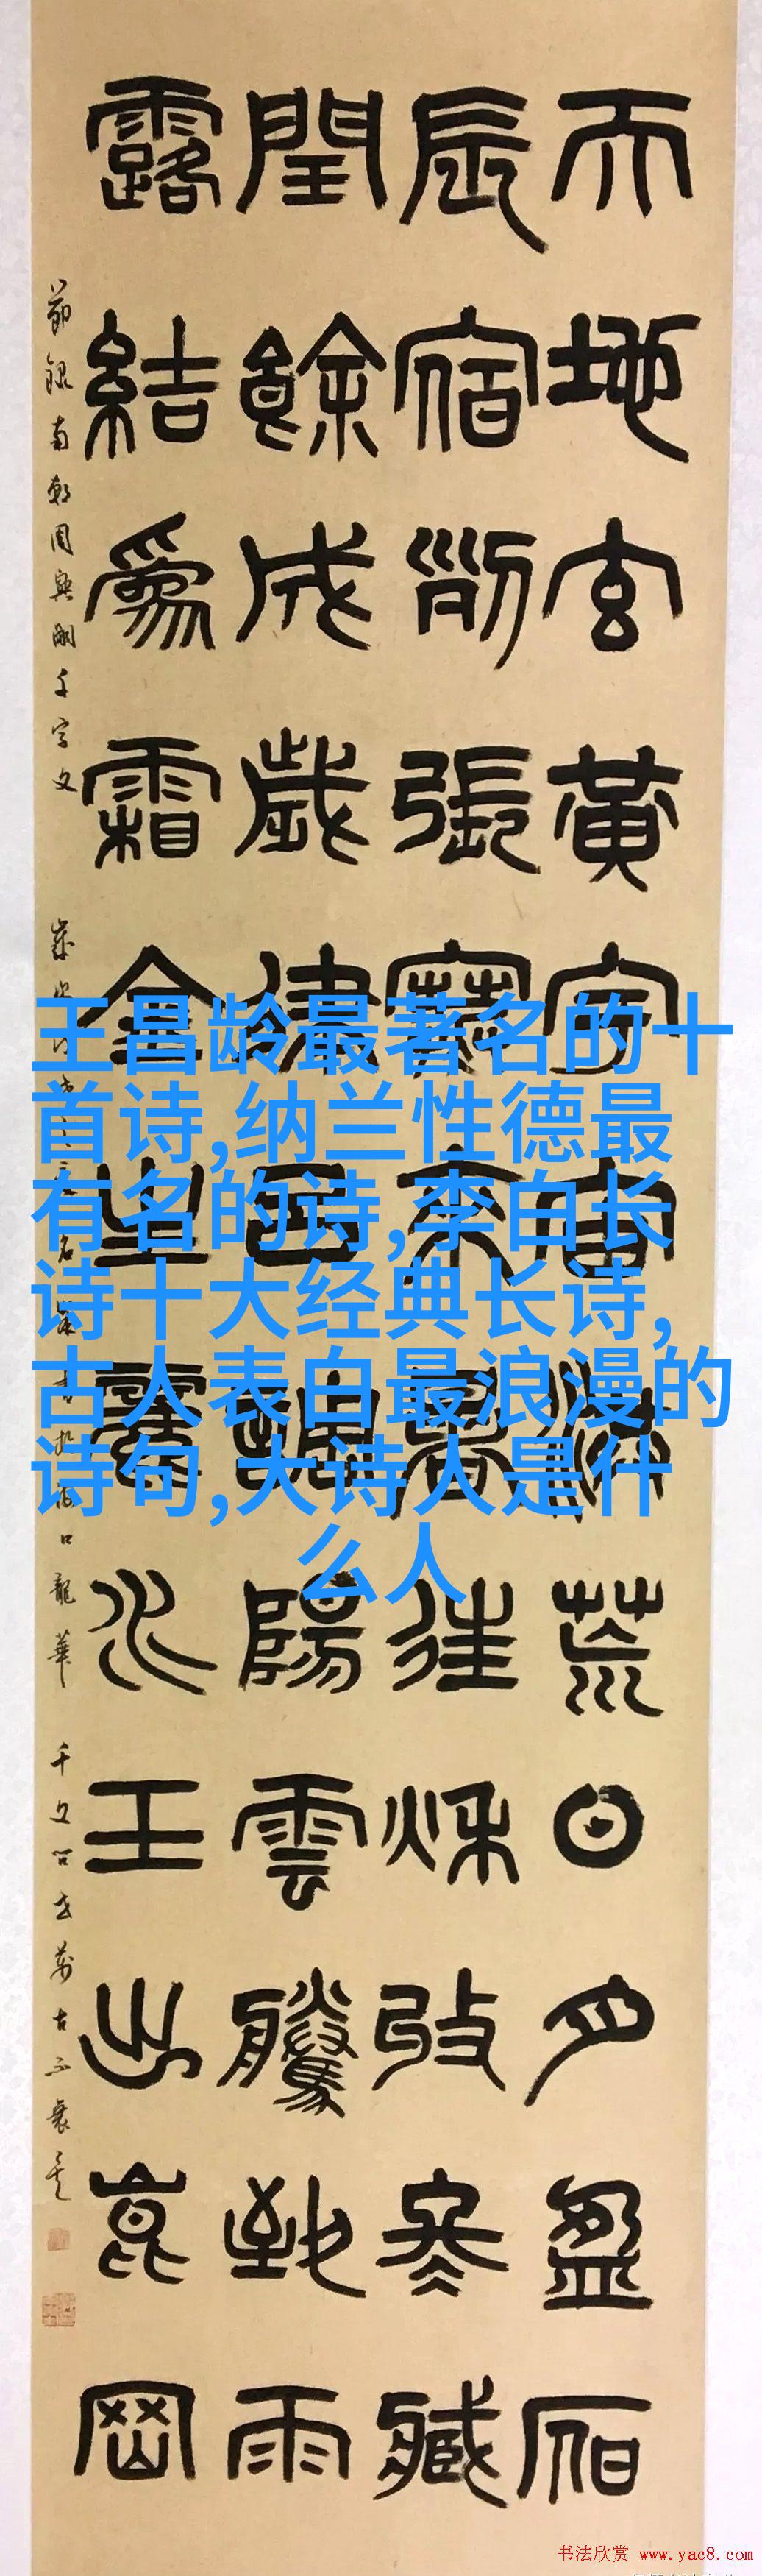 天地玄黃宇宙洪荒日月盈昃
辰宿列張寒來暑往秋收冬藏
閏餘成歲律呂調陽雲騰致雨
露結為霜金生麗水玉出崑岡
節錄南朝周興嗣千字文
王昌龄最著名的十
首诗,纳兰性德最
有名的诗,李白长
诗十大经典长诗,
古人表白最浪漫的
诗句,大诗人是什
么人
书法欣赏 www.yac8.com